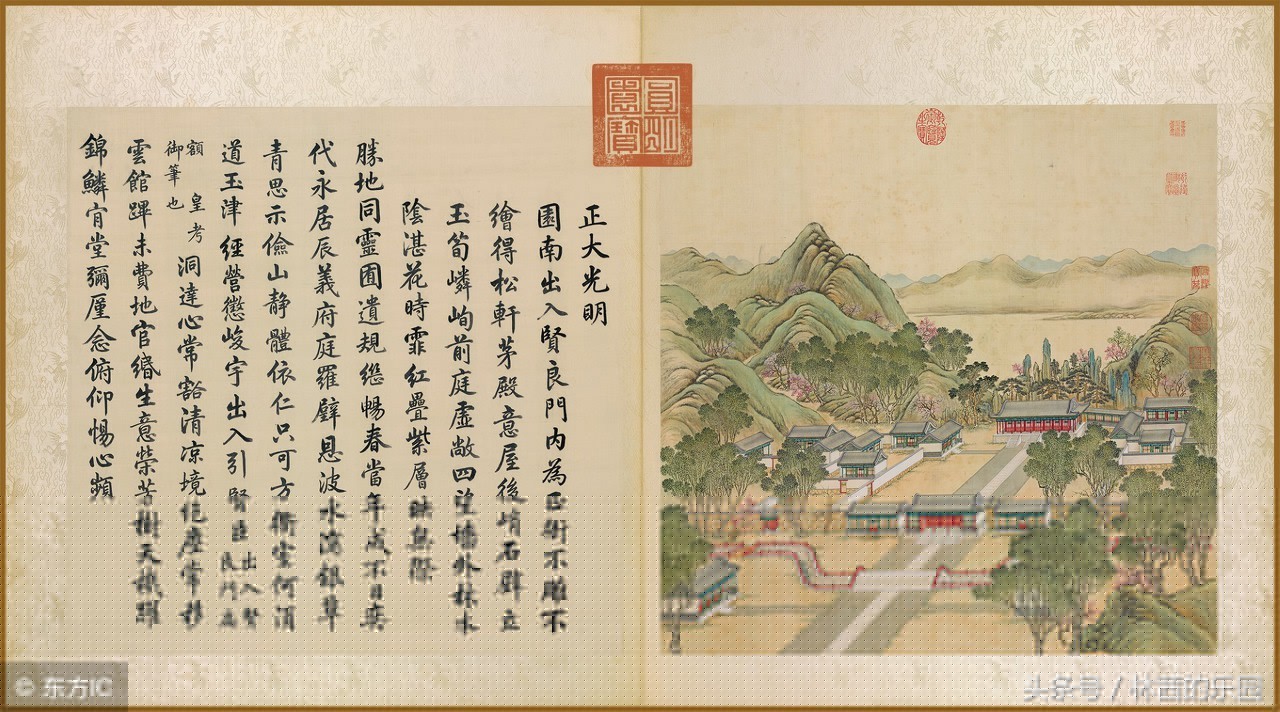 圓明園寶
正大光明
園南出入賢良門内為正衙不雕不
繪得松軒茅殿意屋後峭石壁立
玉筍嶙峋前庭虚敞四望墻外林木
陰湛花時霏紅疊紫層映無際
勝地同靈囿遺規継暢春當年成不日奕
代永居辰義府庭羅壁恩波水瀉銀草
青思示儉山静體依仁只可方衢室何須
道玉津經營懲峻宇出入引賢臣出入賢良門為
額皇考御筆也洞達心常豁清凉境絶塵常移
雲館蹕未費地官緡生意榮芳樹天機躍
錦鱗肎堂彌厪念俯仰惕心頻
© 东方IC
头条号 /